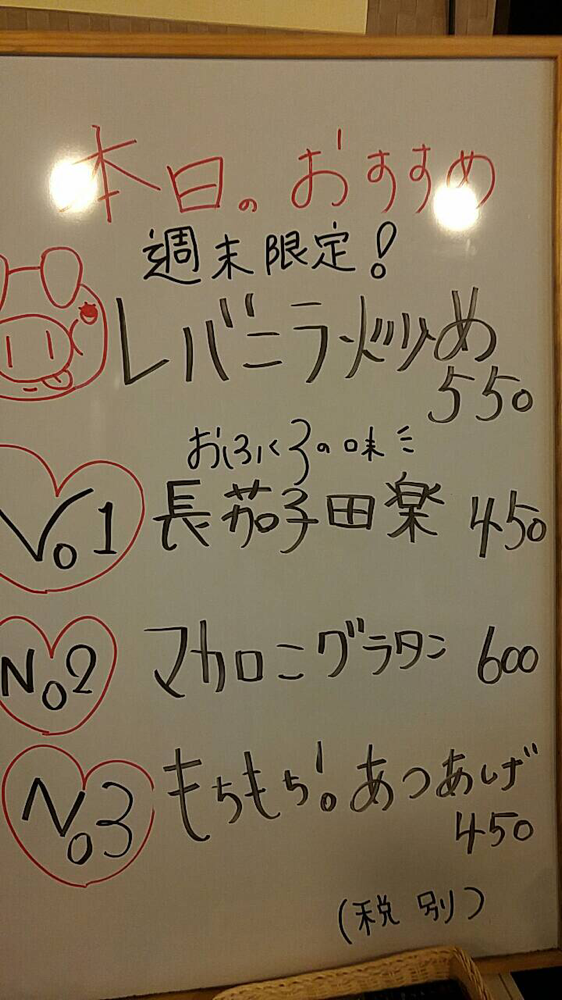 本日のおすすめ
週末限定!
レバニラ炒め
550
おふくろの味
No1 長茄子田楽 450
No2 マカロニグラタン 600
No3 もちもち!。あつあげ
450
(税別)